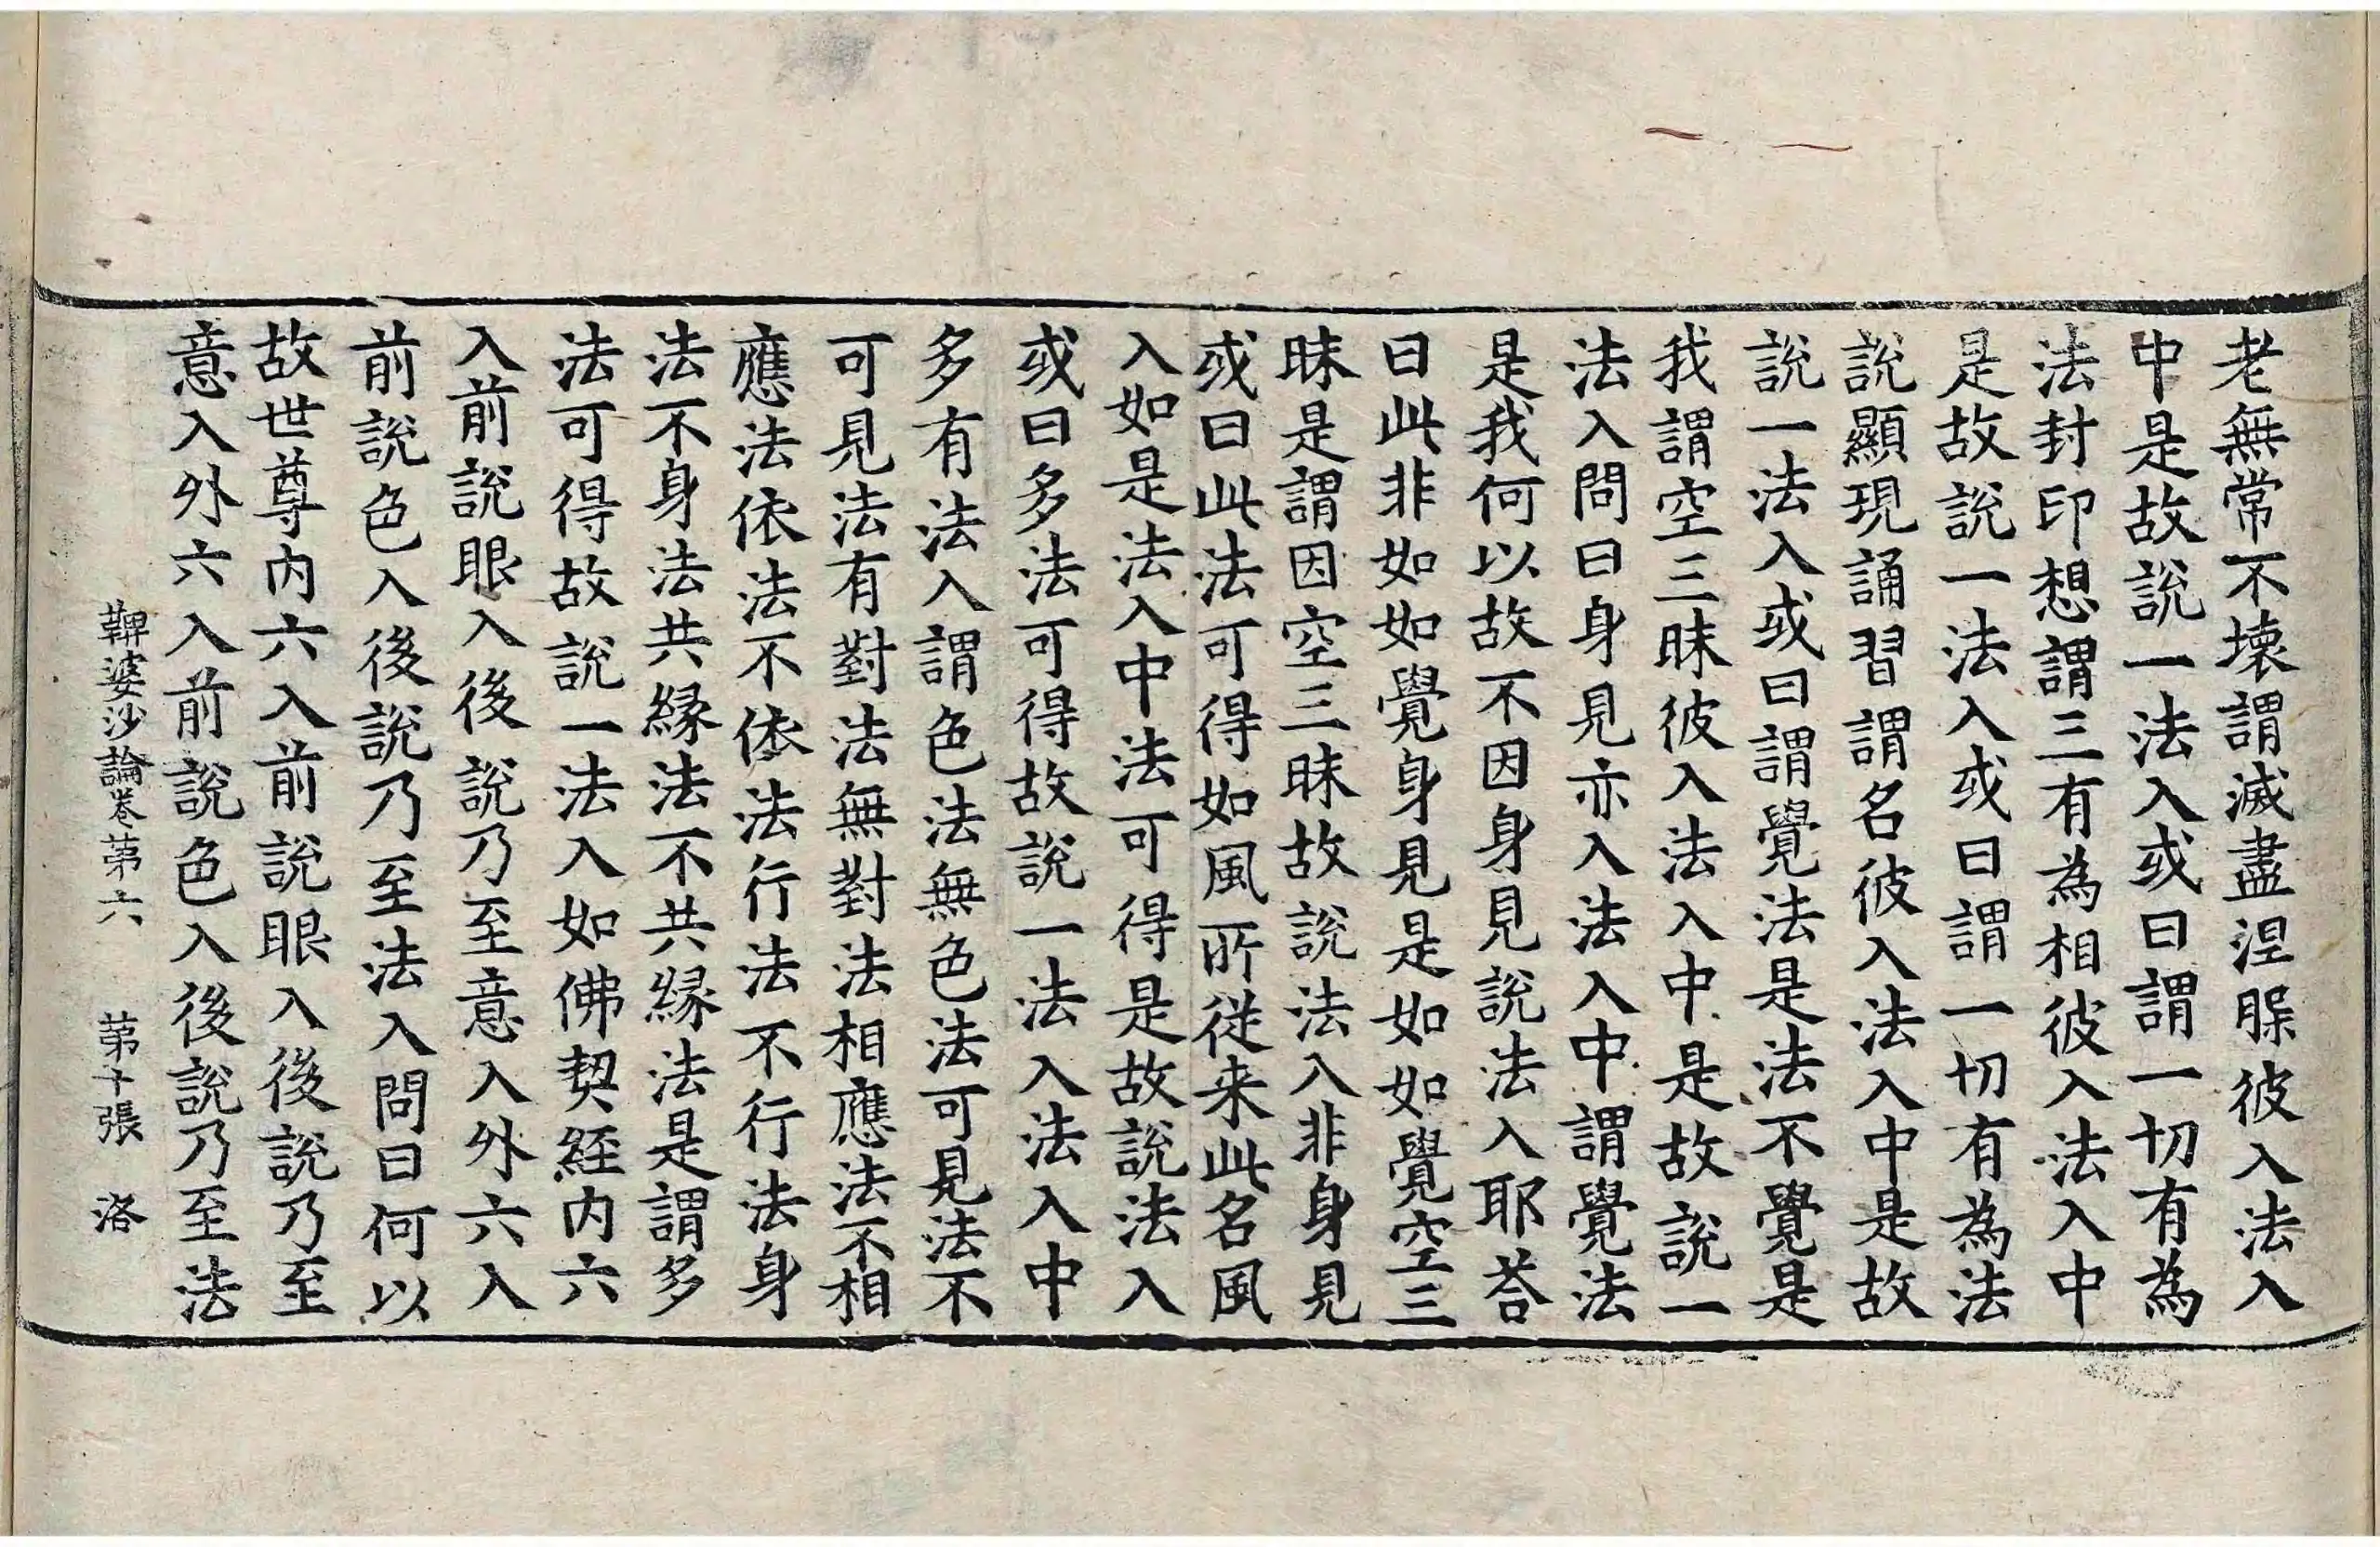 老無常不壞謂滅盡涅槃彼入法入
中是故說一法入或曰謂一切有為
法封印想謂三有為相彼入法入中
是故說一法入或曰謂一切有為法
說顯現誦習謂名彼入法入中是故
說一法入或曰謂覺法是法不覺是
我謂空三昧彼入法入中是故說一
法入問曰身見亦入法入中謂覺法
是我何以故不因身見說法入耶荅
曰此非如如覺身見是如如覺空三
昧是謂因空三昧故說法入非身見
或曰此法可得如風所從来此名風
入如是法入中法可得是故說法入
或曰多法可得故說一法入法入中
多有法入謂色法無色法可見法不
可見法有對法無對法相應法不相
應法依法不依法行法不行法身
法不身法共緣法不共緣法是謂多
法可得故說一法入如佛契経内六
入前說眼入後說乃至意入外六入
前說色入後說乃至法入問曰何以
故世尊内六入前說眼入後說乃至
意入外六入前說色入後說乃至法
鞞婆沙論卷第六 第十張 洛